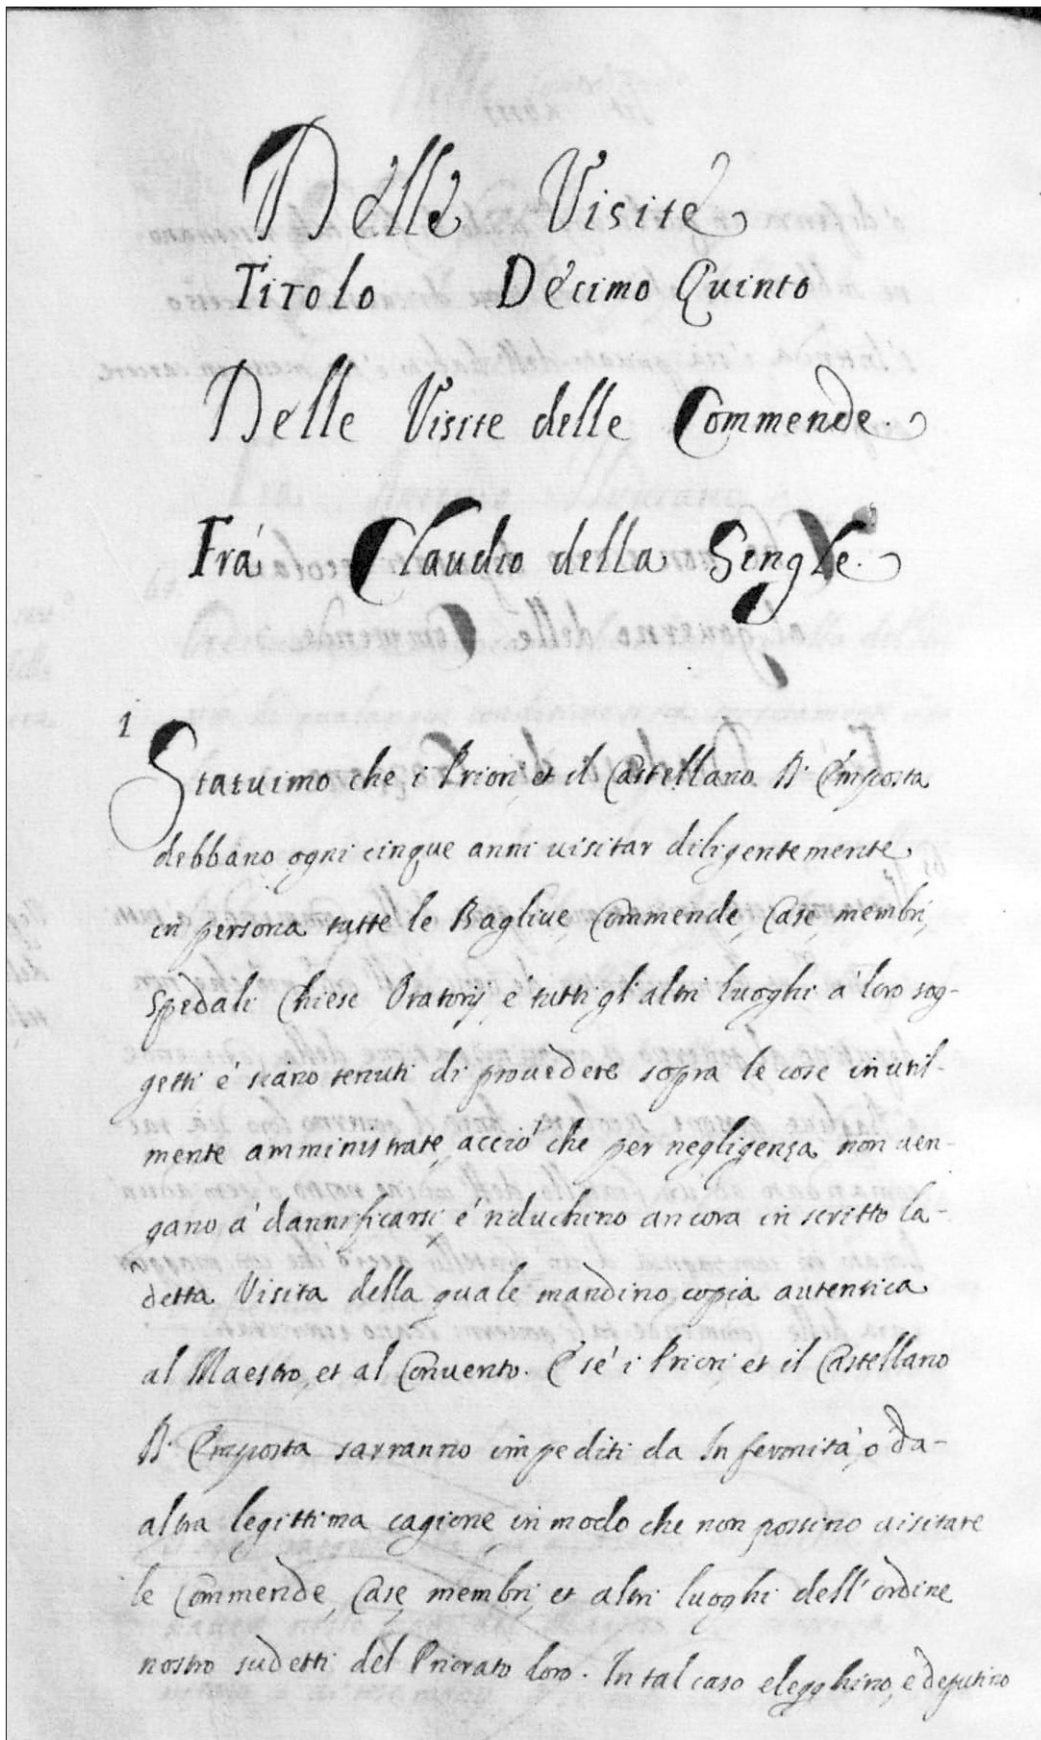 Delle Visite
Titolo Decimo Quinto
Delle Visite delle Commende.
Frà Claudio della Sengle.
1 Statuimo che i Priori, et il Castellano D' Emposta
debbano ogni cinque anni visitar diligentemente
in persona tutte le Baglive, Commende, Case, membri,
Spedali Chiese Oratorij, e' tutti gl'altri luoghi a' loro sog-
getti e' siano tenuti di provedere sopra le cose inutil-
mente amministrate, acciò che per negligenza non ven-
gano a' dannificarsi, e' riduchino ancora in scritto la-
detta Visita della quale mandino copia autentica
al Maestro, et al Convento. E' se' i Priori, et il Castellano
D' Emposta sarranno impediti da Infermità, o' da-
altra legittima cagione, in modo che non possino visitare
le Commende, Case, membri, et altri luoghi dell'ordine
nostro sudetti del Priorato loro. In tal caso elegghino, e deputino